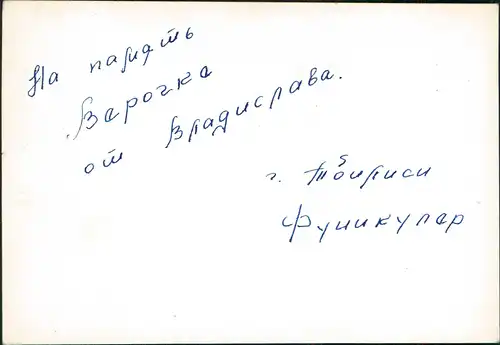 На память
Верочке
от Владислава.
г. Тбилиси
Фуникулер